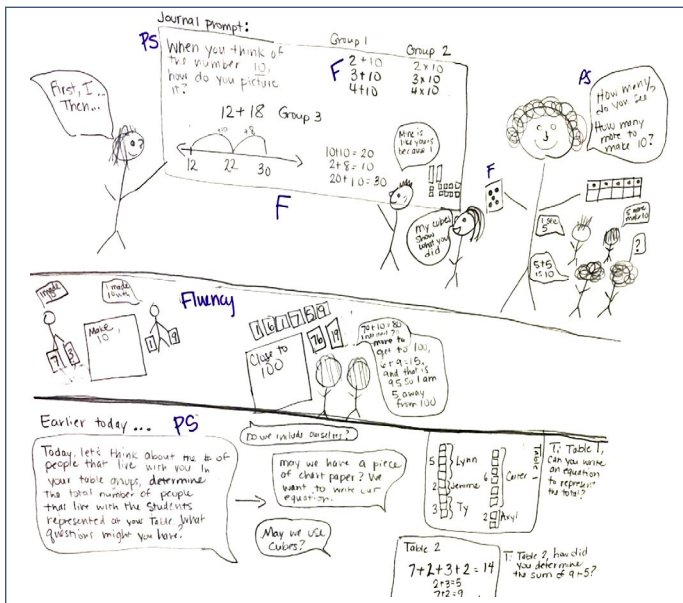 Journal Prompt:
PS
When you think of
the number 10,
how do you picture
it?
Group 1
F
2+10
3+10
4+10
Group 2
2x10
3x10
4x10
12+18 Group 3
+10 +8
12 22 30
10+10=20
2+8=10
20+10=30
F
First, I...
Then...
Mine is
like yours
because
my cubes
show
what you
did
F
PS
How many
do you see?
How many
more to
make 10?
I see
5
5 more
make 10
5+5
is 10
?
Fluency
I made
10
I made
10 with
Make
10
7 3
1 9
1 6 1 7 5 9
76 19
Close to
100
70+10=80
more to
get to 100,
6+9=15,
and that is
95 so I am
5 away
from 100
Earlier today ... PS
Today, let's think about the # of
people that live with you. In
your table groups, determine
the total number of people
that live with the students
represented at your Table. What
questions might you have?
Do we include ourselves?
May we have a piece
of chart paper? We
want to write our
equation.
May we use
cubes?
5 Lynn
2 Jerome
3 Ty
6 Carter
2 Aryl
Table 1
T: Table 1,
Can you write
an equation
to represent
the total?
Table 2
7+2+3+2=14
2+3=5
7+2=9
T: Table 2, how did
you determine
the sum of 9+5?